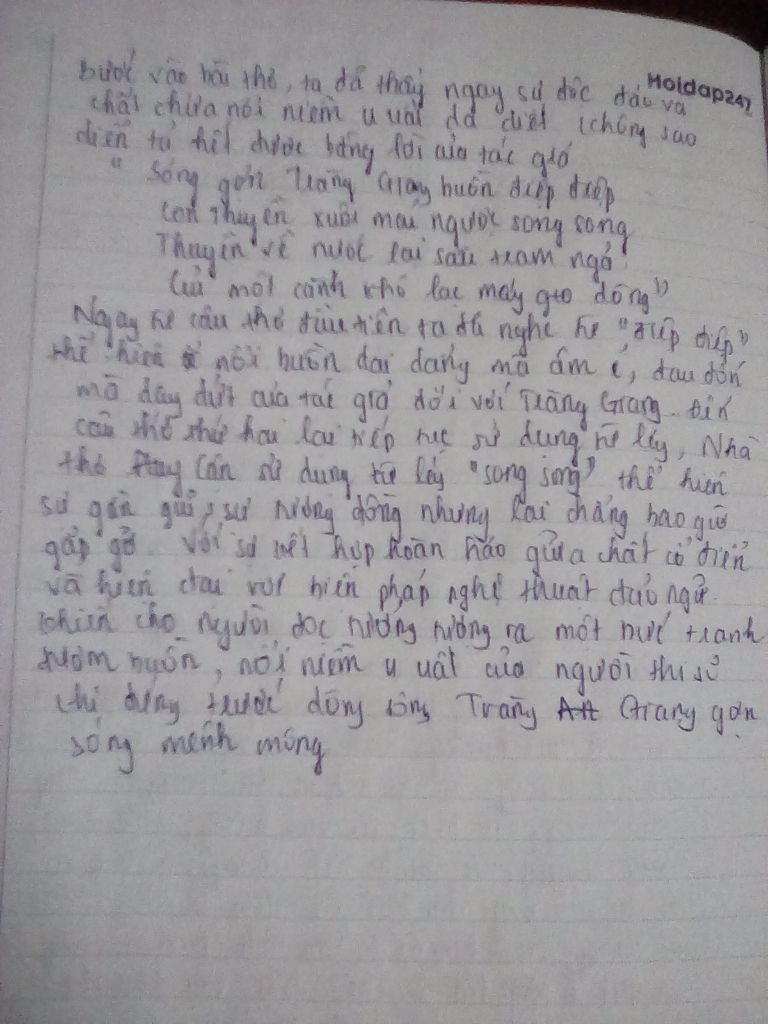 Bước vào bài thơ, ta đã thấy ngay sự độc đáo và
Hoidap247
chất chứa nỗi niềm u uất da diết không sao
diễn tả hết được bằng lời của tác giả
" Sóng gợn Tràng Giang buồn điệp điệp
Con Thuyền xuôi mái nước song song
Thuyền về nước lại sầu trăm ngả
Củi một cành khô lạc mấy dòng"
Ngay từ câu thơ đầu tiên ta đã nghe từ "điệp điệp"
thể hiện nỗi buồn dai dẳng mà âm ỉ, đau đớn
mà day dứt của tác giả đối với Tràng Giang. Đến
câu thơ thứ hai lại tiếp tục sử dụng từ láy, Nhà
thơ còn sử dụng từ láy "song song" thể hiện
sự gần gũi, sự tương đồng nhưng lại chẳng bao giờ
gặp gỡ. Với sự kết hợp hoàn hảo giữa chất cổ điển
và hiện đại với biện pháp nghệ thuật đảo ngữ.
khiến cho người đọc tưởng tượng ra một bức tranh
đượm buồn, nỗi niềm u uất của người thi sĩ
khi đứng trước dòng sông Tràng Giang gợn
sóng mênh mông